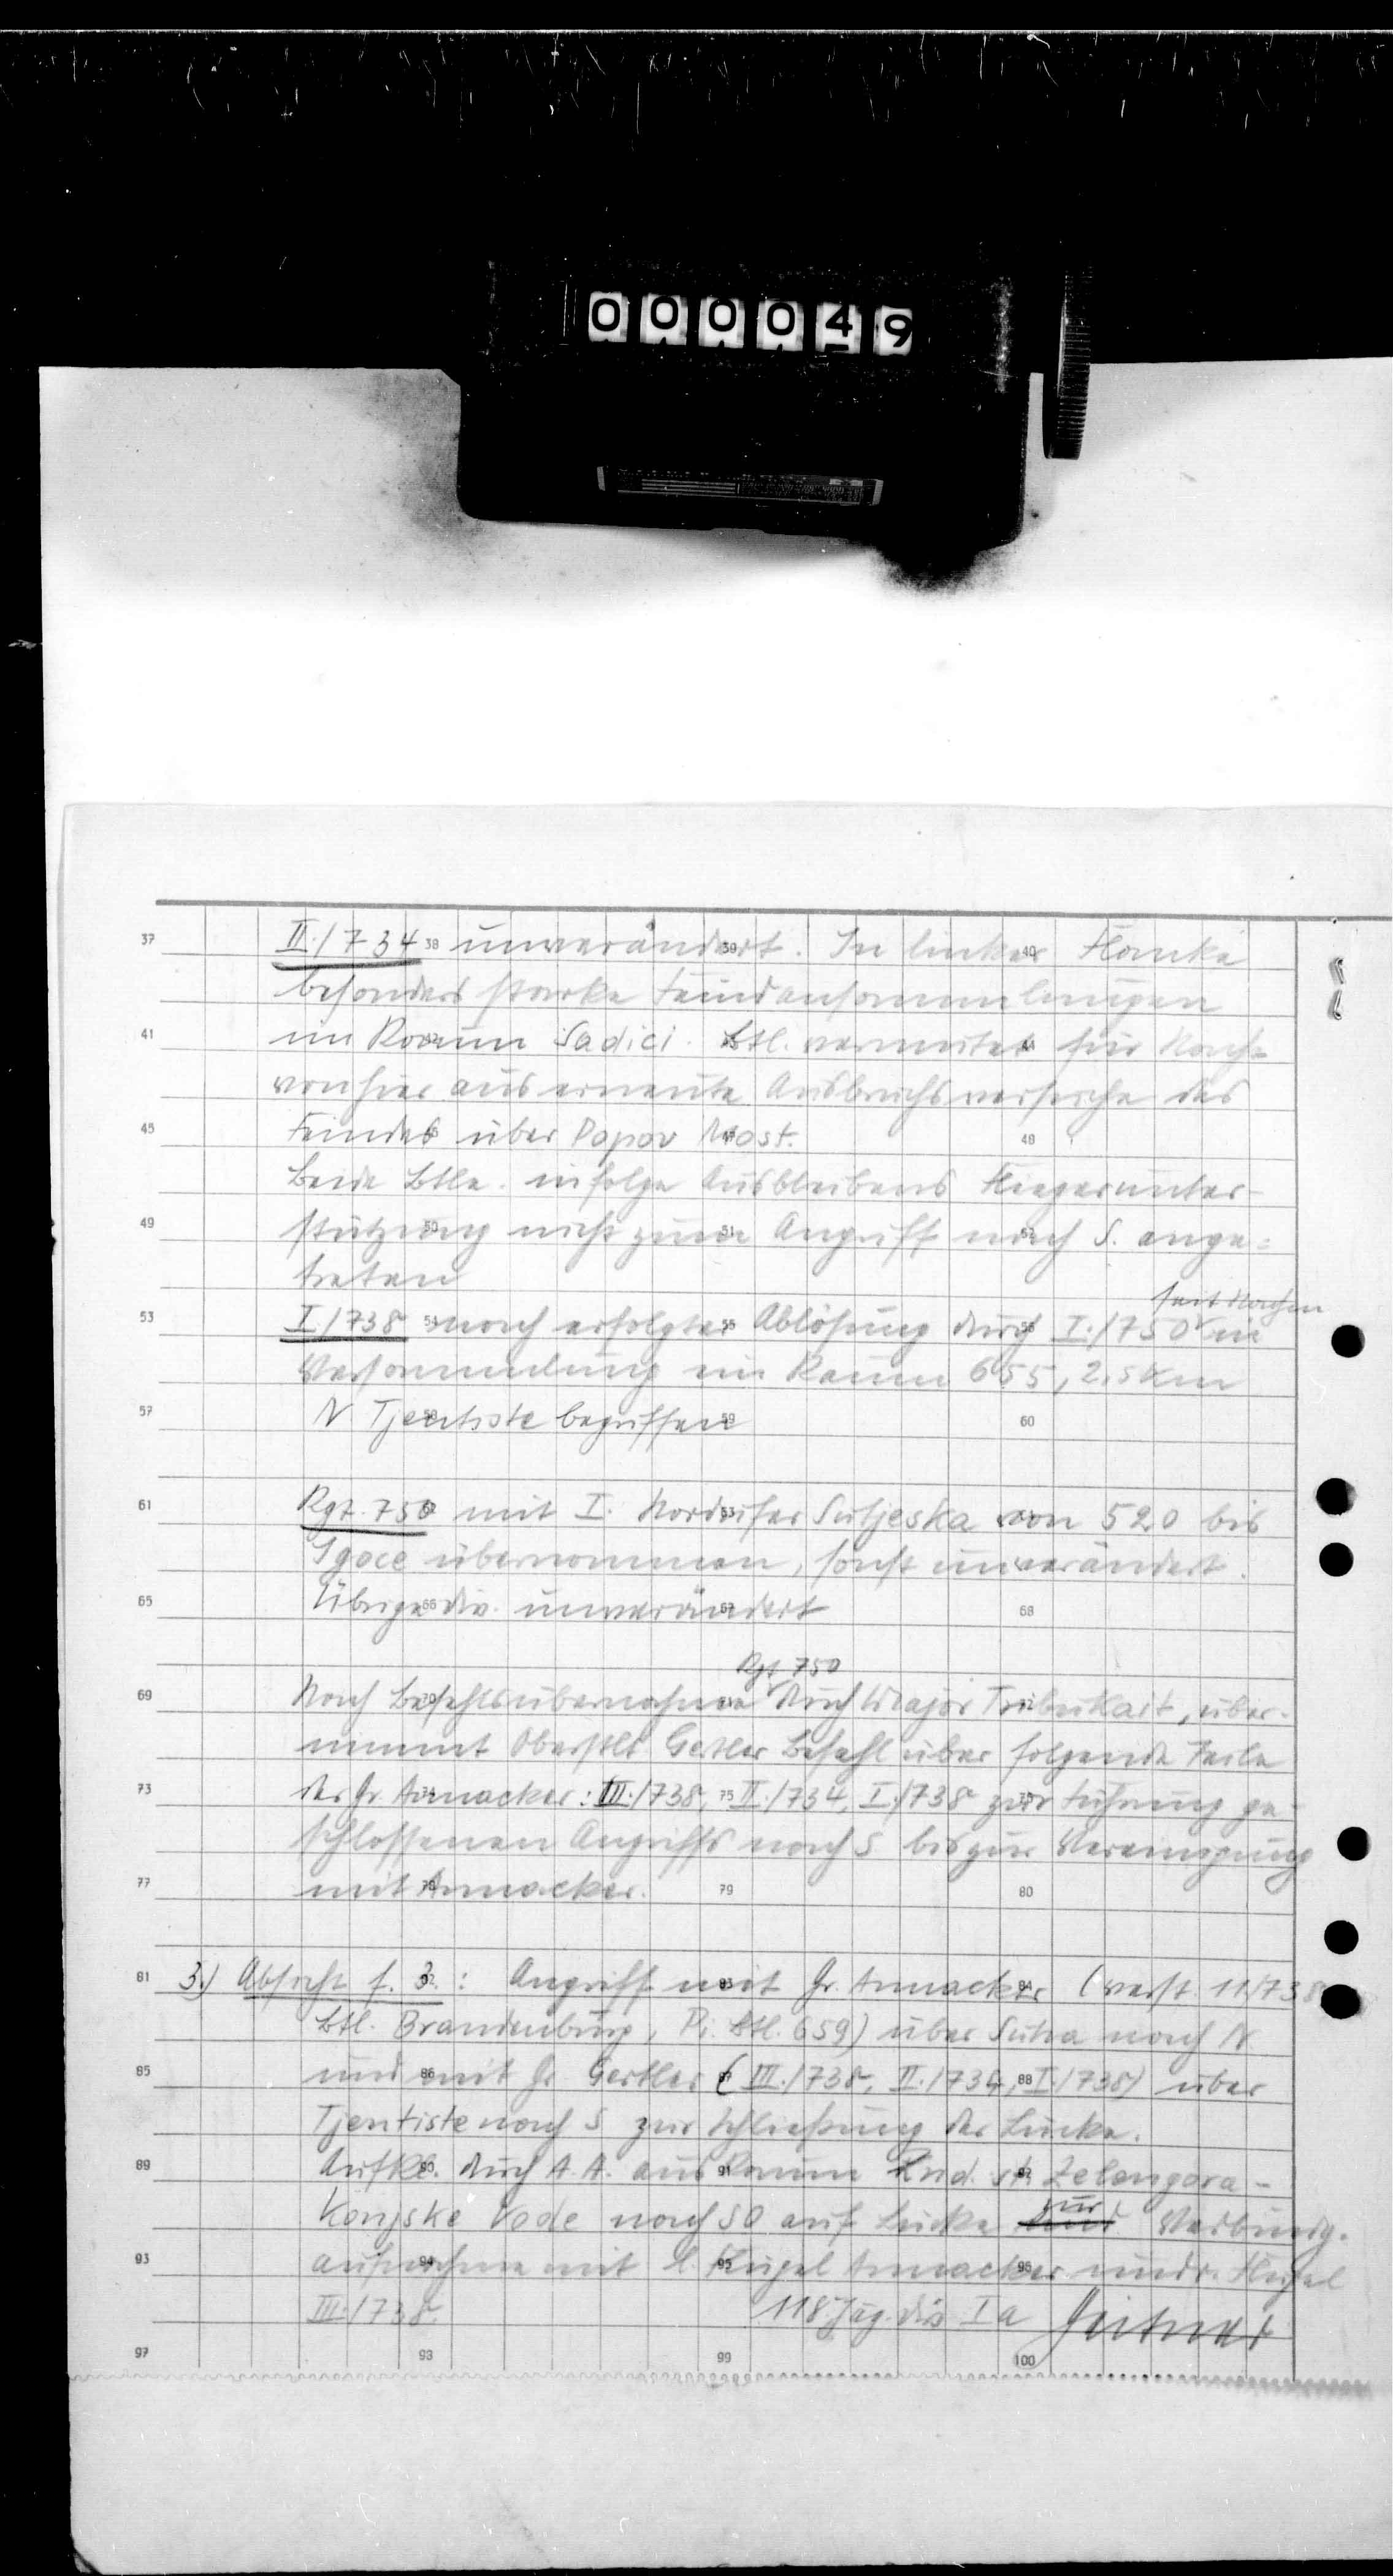 000049
37 II./734 38 unverändert. 39 In linker 40 Flanke
besonders starke Feindansammlungen
41 im Raum Sadici. Btl. vermutet für Nacht
von hier aus erneute Ausbruchsversuche des
45 Feindes über Popov Most. 48
Beide Btle. infolge Ausbleibens Fliegerunter-
49 stützung 50 nicht zum 51 Angriff 52 nach S. ange=
treten
seit Morgen
53 I./738 54 nach erfolgter 55 Ablösung durch 56 I./750 in
Versammlung im Raum 655, 2,5 km
57 N Tjentiste 58 begriffen 59 60
61 Rgt. 750 mit I. Nordufer 63 Sutjeska von 520 bis
Igoce übernommen, sonst unverändert.
65 Übrige 66 Div. unverändert 67 68
Rgt. 750
69 Nach Befehlsübernahme durch Major Tribukait, über-
nimmt Oberstlt. Gertler Befehl über folgende Teile
73 der Gr. Annacker: III./738, 75 II./734, I./738 zur Führung ge-
schlossenen Angriffs nach S bis zur Vereinigung
77 mit 78 Annacker. 79 80
81 3.) Absicht f. 3.: 82 Angriff 83 mit Gr. Annacker 84 (verst. 11/738
Btl. Brandenburg, Pi. Btl. 659) über Suha nach N.
85 und 86 mit Gr. Gertler (III./738, II./734, 88 I./738) über
Tjentiste nach S zur Schließung der Lücke.
89 Aufkl. 90 durch A. A. aus 91 Raum 92 Zelengora -
zur
Konjske Vode nach SO auf Lucka Verbindg.
93 aufnahme 94 mit l. 95 Flügel Annacker 96 und r. Flügel
III./738.
118. Jäg. Div. Ia
97 98 99 100